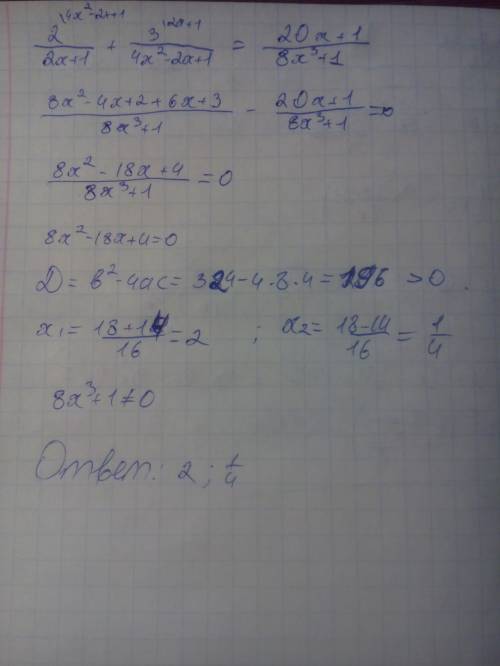 2 \4x²-2x+1 / 2x+1 + 3 \2x+1 / 4x²-2x+1 = 20x+1 / 8x³+1
8x²-4x+2+6x+3 / 8x³+1 - 20x+1 / 8x³+1 = 0
8x²-18x+4 / 8x³+1 = 0
8x²-18x+4=0
D = b²-4ac = 324-4·8·4 = 196 >0.
x₁ = 18+14 / 16 = 2 ; x₂ = 18-14 / 16 = 1/4
8x³+1≠0
Ответ: 2; 1/4